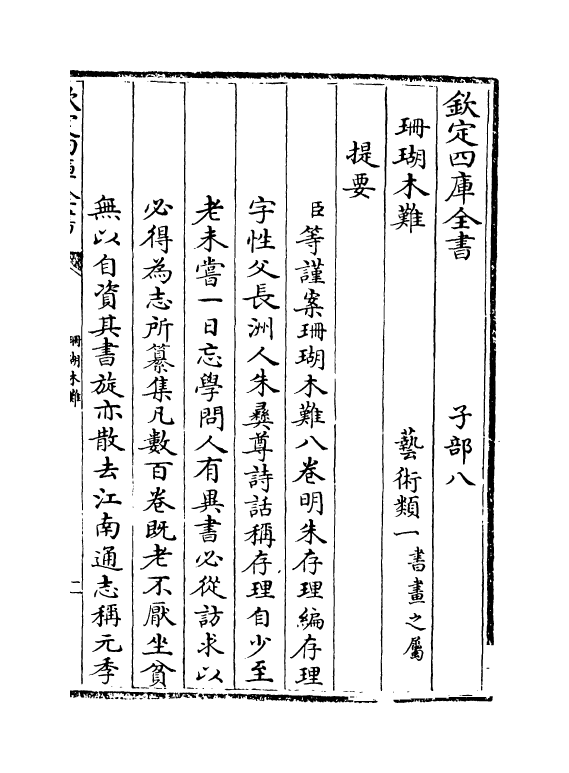 欽定四庫全書 子部八
珊瑚木難 藝術類一書畫之屬
提要
臣等謹案珊瑚木難八卷明朱存理編存理
字性父長洲人朱彝尊詩話稱存理自少至
老未嘗一日忘學問人有異書必從訪求以
必得為志所纂集凡數百卷既老不厭坐貧
無以自資其書旋亦散去江南通志稱元季
欽定四庫全書 珊瑚木難 二